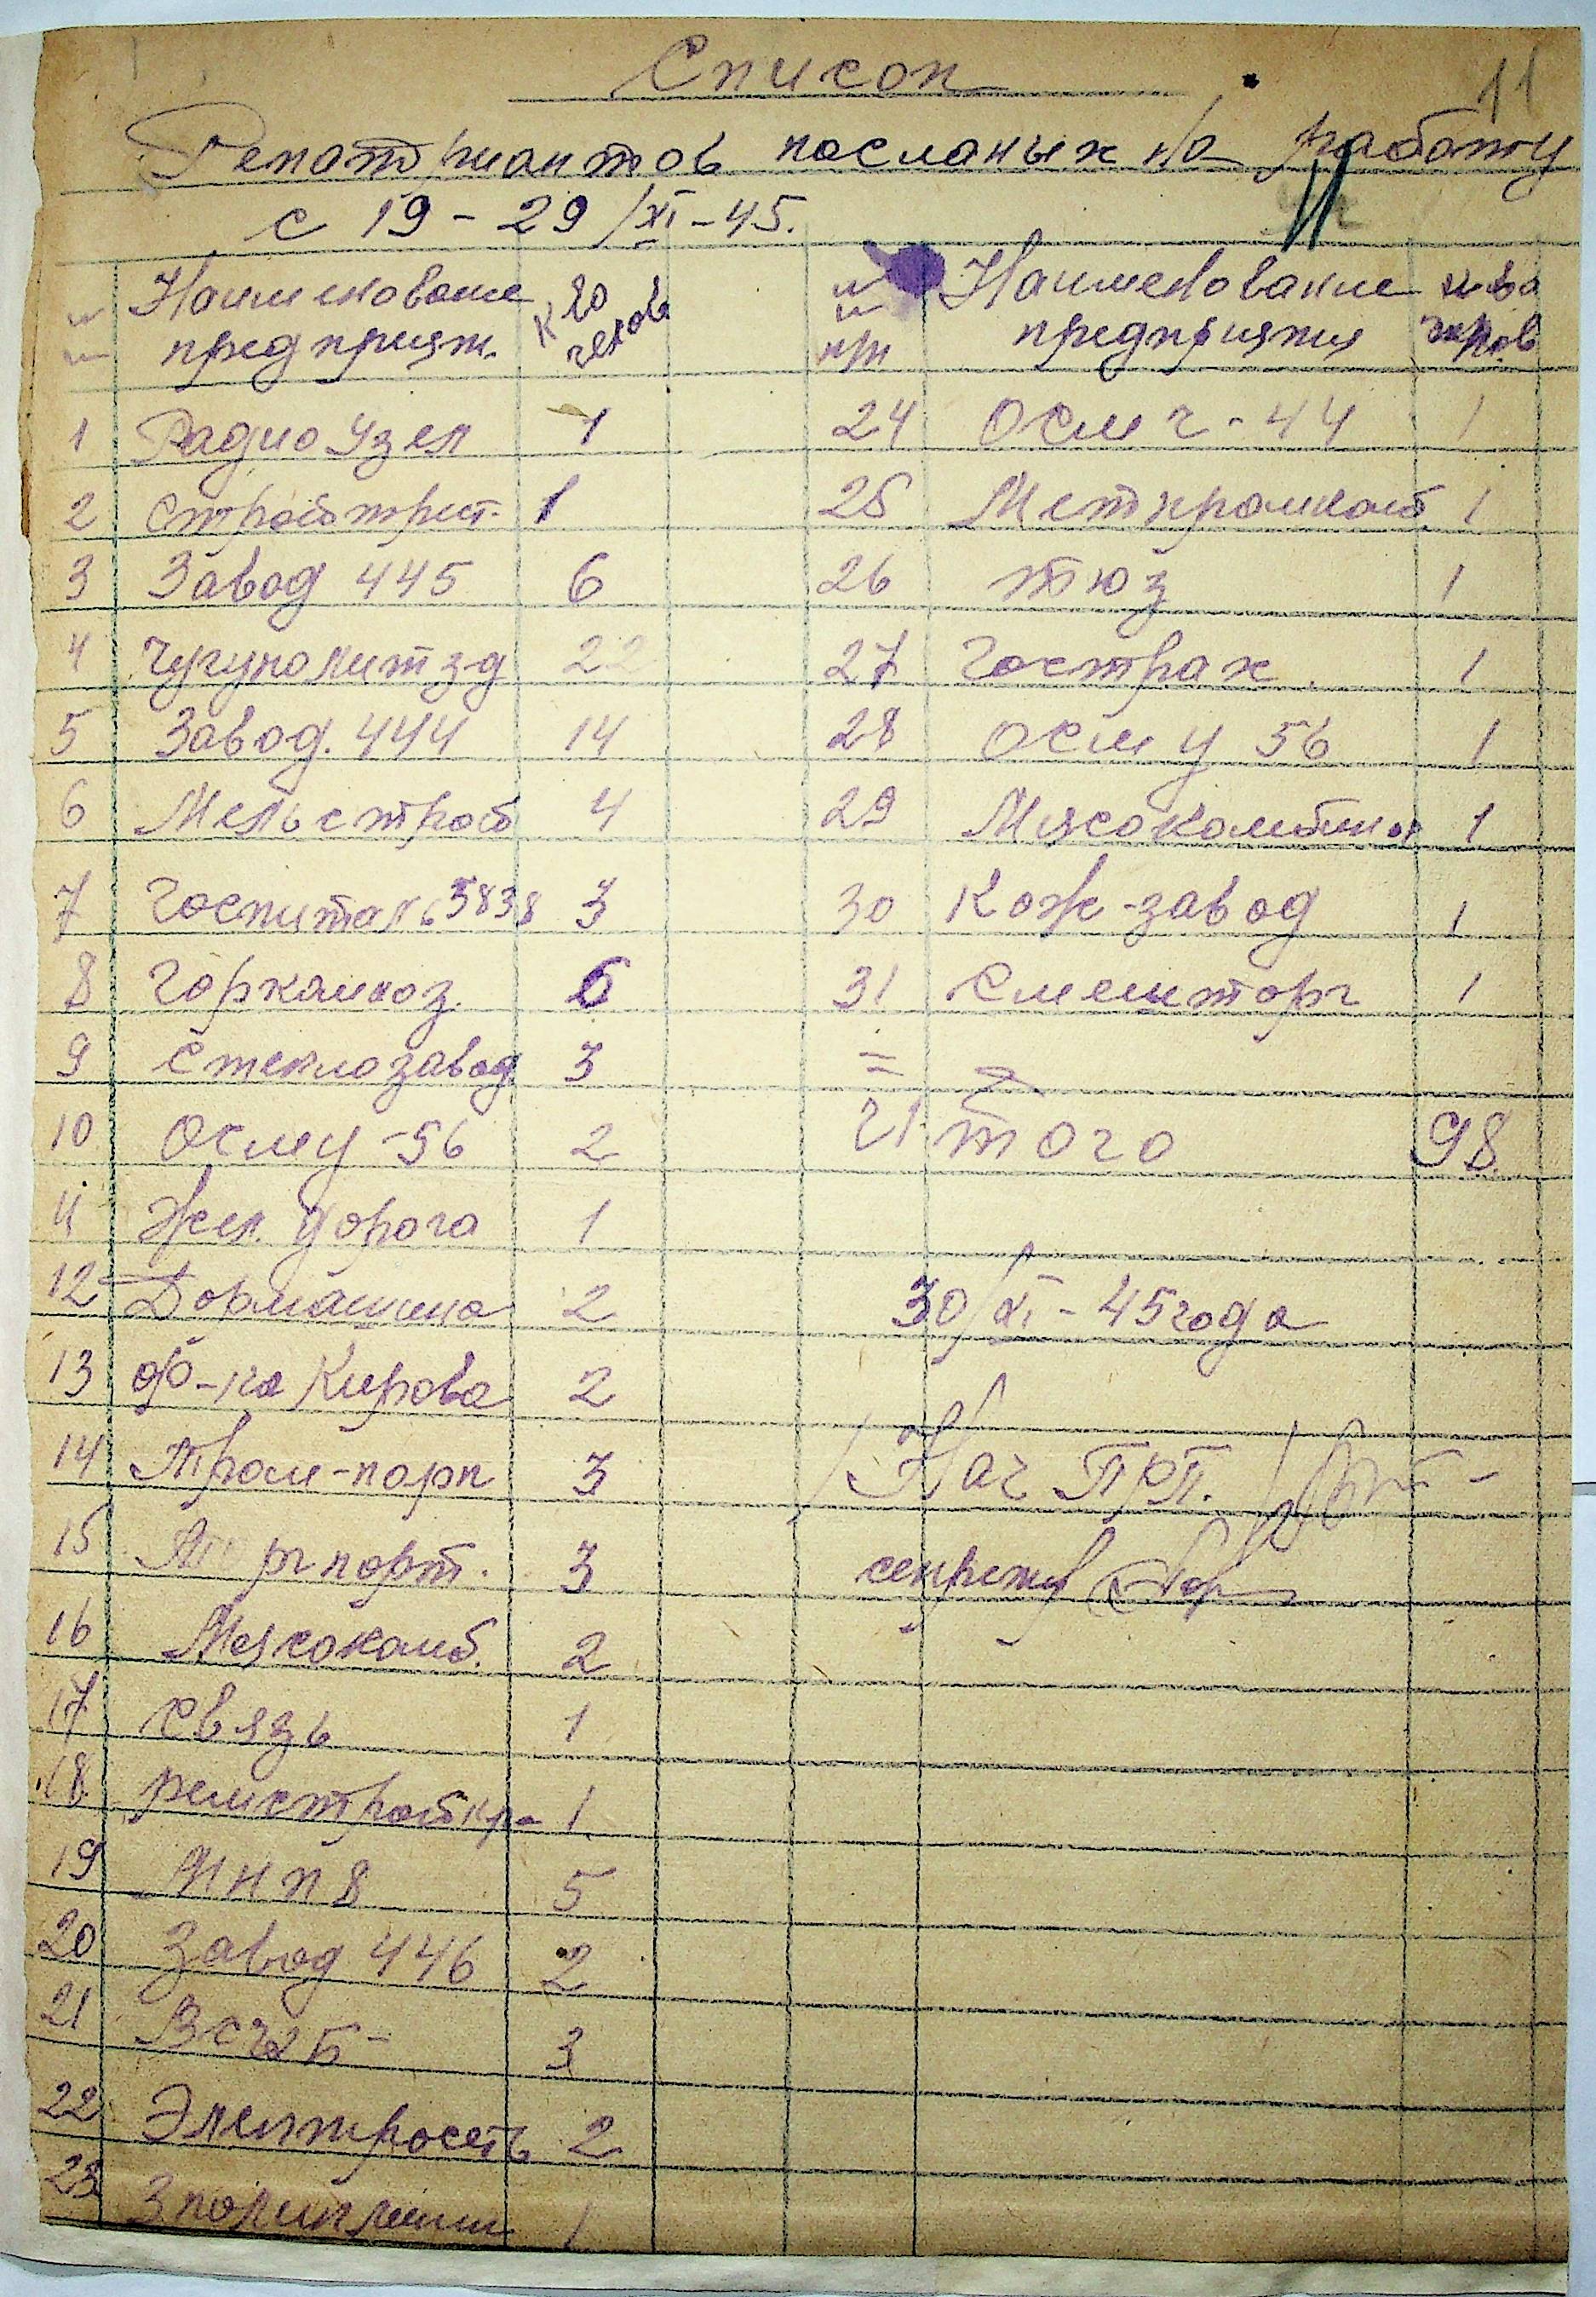 Список
11
Репатриантов посланых на работу
с 19 - 29/XI - 45.
Наименование предприят. к-во челов
1 Радио Узел 1
2 Стройтрест. 1
3 Завод 445 6
4 Чугунолит з-д 22
5 Завод. 444 14
6 Мельстрой 4
7 Госпиталь 5838 3
8 Горкомхоз. 6
9 Стеклозавод 3
10 Осму - 56 2
11 Жел. дорога 1
12 Дормашина 2
13 ф-ка Кирова 2
14 Трам-парк 3
15 Торгпорт. 3
16 Мясокомб. 2
17 Связь 1
18 ремстройк 1
19 8 5
20 Завод 446 2
21 3
22 Электросеть 2
23 3 поликлин 1
№ № п/п Наименование предприятия к-во челов
24 Осмч - 44 1
25 Метпромкомб 1
26 тюз 1
27 Гострах. 1
28 Осму 56 1
29 Мясокомбинат 1
30 Кож-завод 1
31 Смешторг 1
=
Итого 98
30/XI - 45 года
Нач ПРП.
секретарь